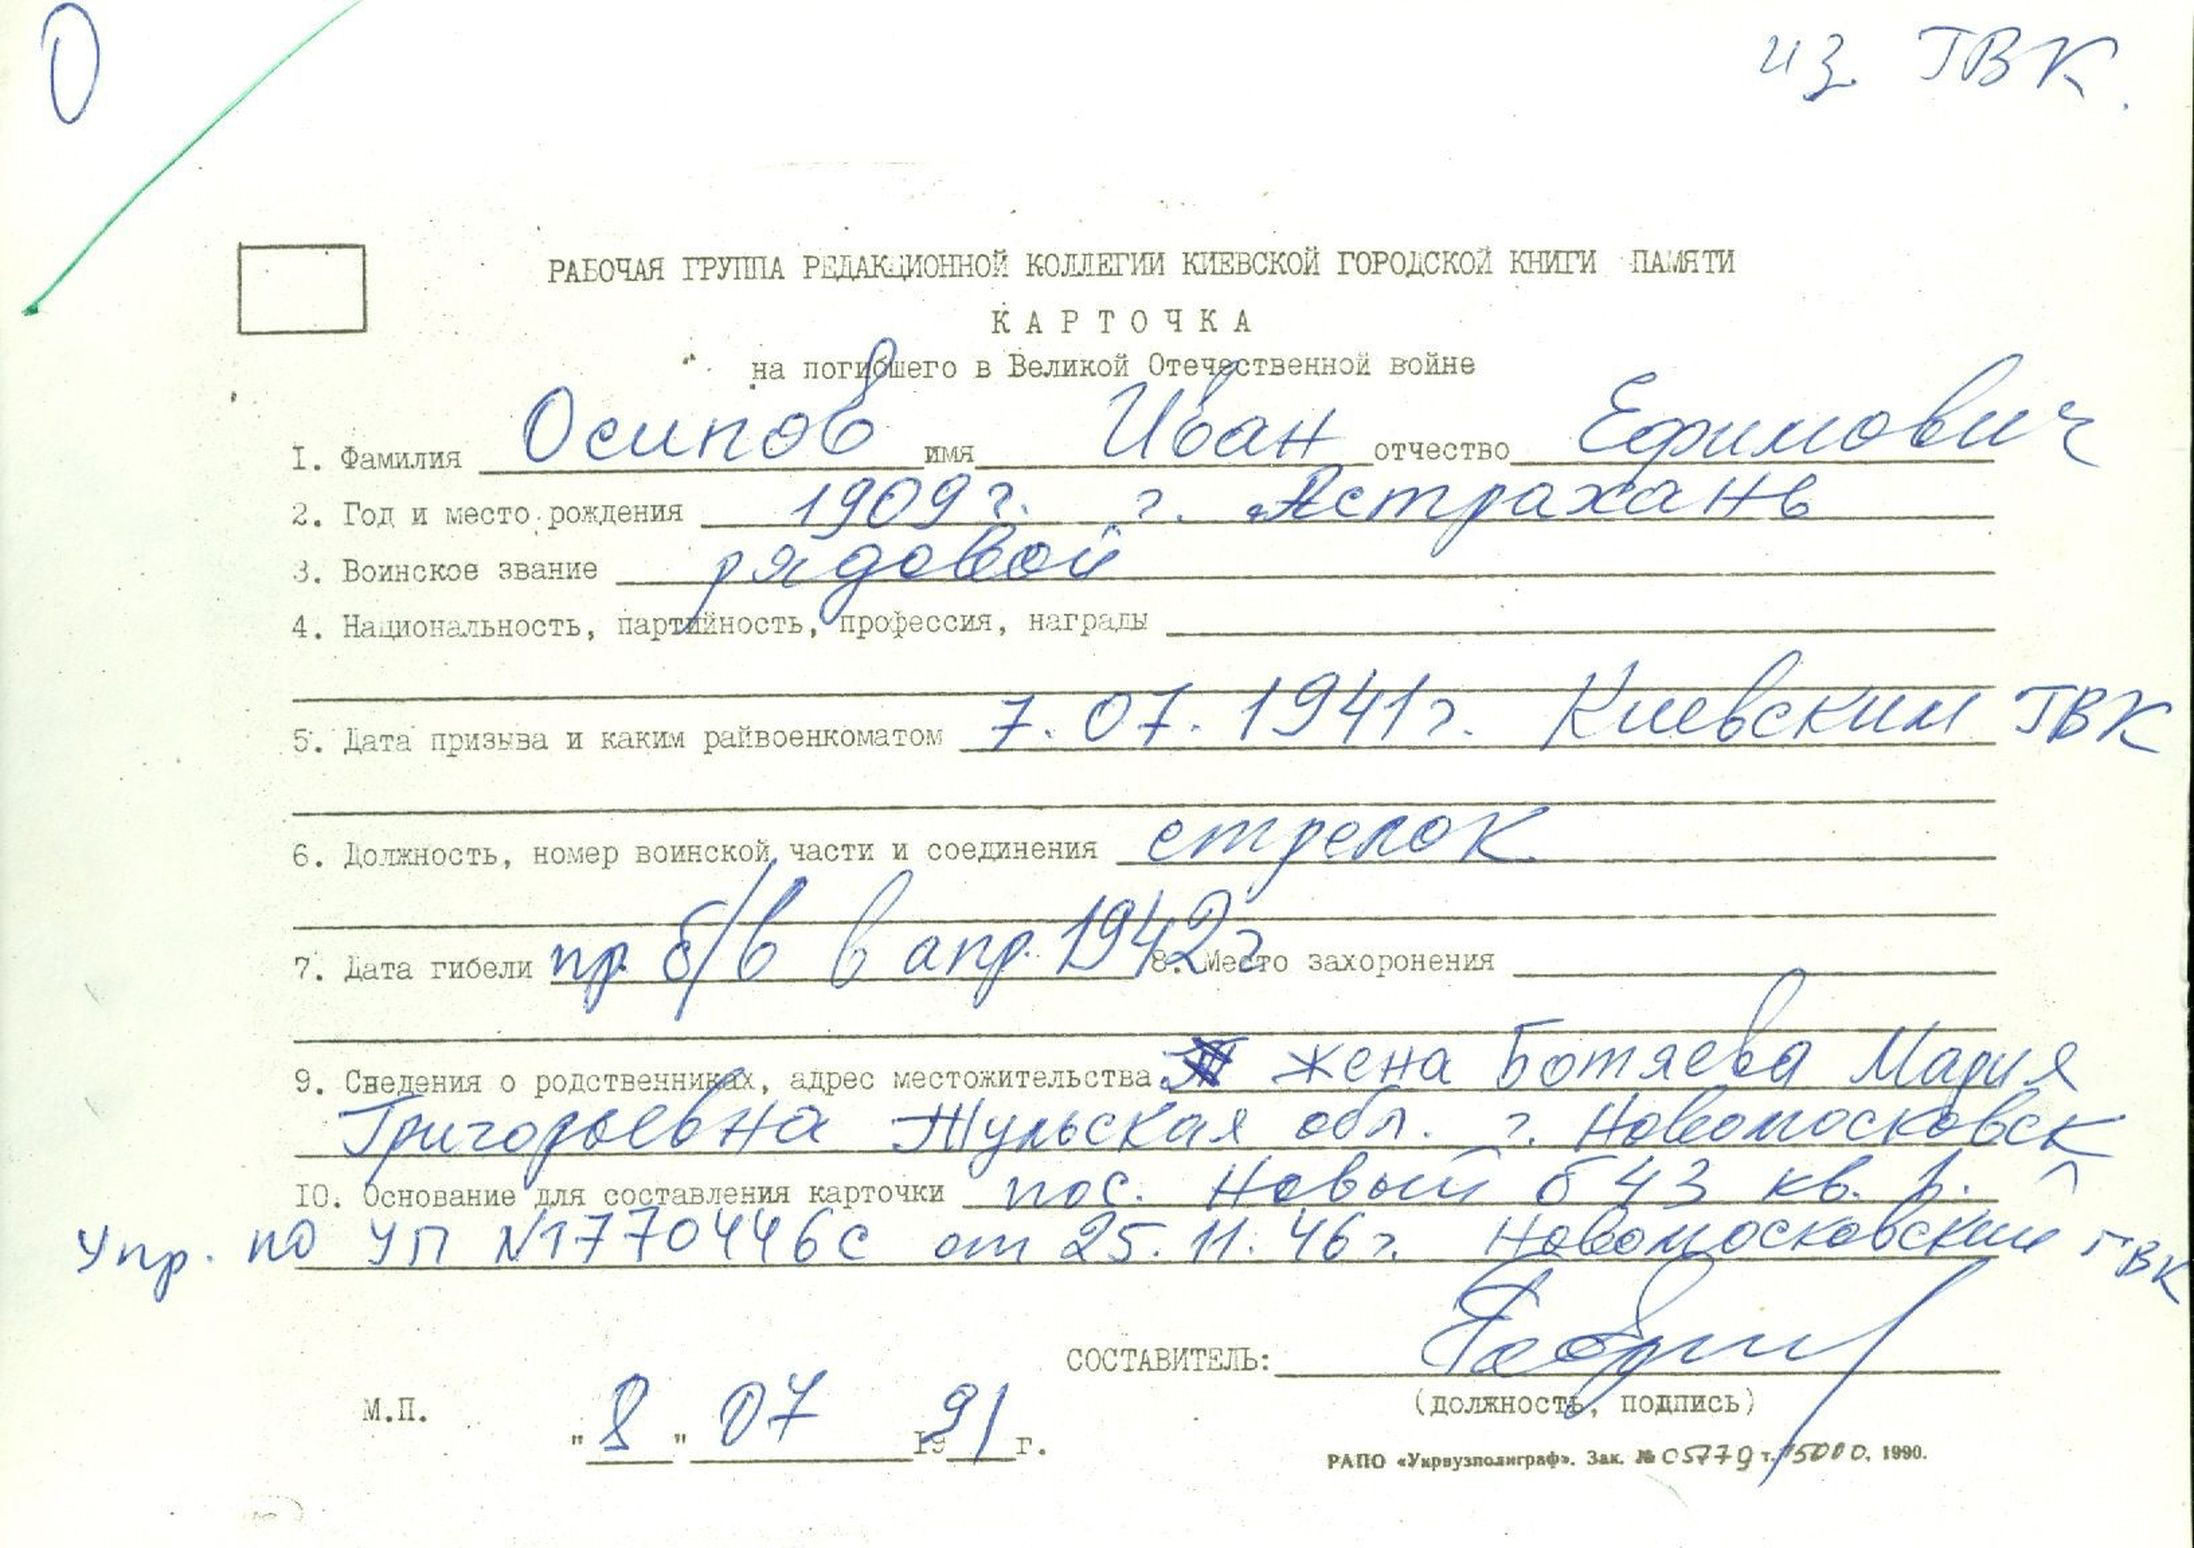 О
из ГВК.
РАБОЧАЯ ГРУППА РЕДАКЦИОННОЙ КОЛЛЕГИИ КИЕВСКОЙ ГОРОДСКОЙ КНИГИ ПАМЯТИ
КАРТОЧКА
на погибшего в Великой Отечественной войне
I. Фамилия Осипов имя Иван отчество Ефимович
2. Год и место рождения 1909 г. г. Астрахань
3. Воинское звание рядовой
4. Национальность, партийность, профессия, награды
5. Дата призыва и каким райвоенкоматом 7.07.1941г. Киевским ГВК
6. Должность, номер воинской части и соединения стрелок
7. Дата гибели пр. б/в в апр. 1942 г 8. Место захоронения
9. Сведения о родственниках, адрес местожительства жена Ботяева Мария
Григорьевна Тульская обл. г. Новомосковск
10. Основание для составления карточки пос. Новый б 43 кв. 1.
Упр. по УП N1770446с от 25.11.46г. Новомосковский ГВК
СОСТАВИТЕЛЬ:
(ДОЛЖНОСТЬ, ПОДПИСЬ)
М.П. "8" 07 1991 г.
РАПО «Укрвузполиграф». Зак. № 05779 т. 15000, 1990.